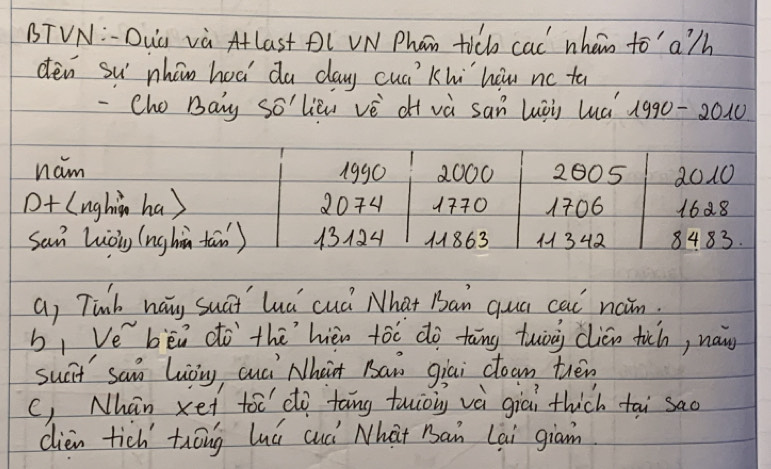 BTVN:- Dựa và Atlast ĐL VN Phân tích các nhân tố a²/h
đến sự phân hoá đa dạng của khí hậu nc ta
- Cho Bảng số liệu về dt và sản lượng lúa 1990-2010
năm 1990 2000 2005 2010
Dt <nghìn ha> 2074 1770 1706 1628
sản lượng (nghìn tấn) 13124 11863 11342 8483.
a, Tính năng suất lúa của Nhật Bản qua các năm.
b, Vẽ biểu đồ thể hiện tốc độ tăng trưởng diện tích, năng
suất sản lượng của Nhật Bản giai đoạn trên
c, Nhận xét tốc độ tăng trưởng và giải thích tại sao
diện tích trồng lúa của Nhật Bản lại giảm.